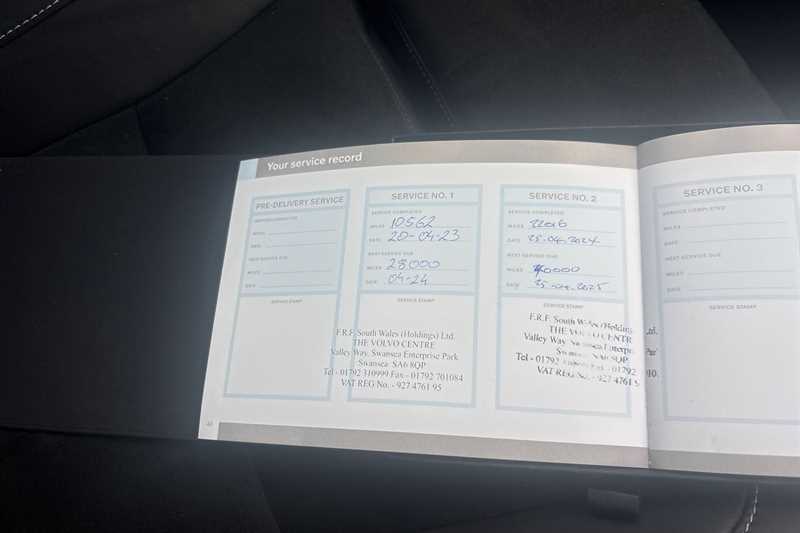 Your service record
PRE-DELIVERY SERVICE
MILES
DATE
NEXT SERVICE DUE
MILES
DATE
SERVICE STAMP
SERVICE NO. 1
SERVICE COMPLETED
MILES 10562
DATE 20-04-23
NEXT SERVICE DUE
MILES 28000
DATE 04-24
SERVICE STAMP
F.R.F. South Wales (Holdings) Ltd.
THE VOLVO CENTRE
Valley Way, Swansea Enterprise Park
Swansea. SA6 8QP
Tel - 01792 310999 Fax - 01792 701084
VAT REG No. - 927 4761 95
SERVICE NO. 2
SERVICE COMPLETED
MILES 22016
DATE 25.04.2024
NEXT SERVICE DUE
MILES 40000
DATE 25-04.2025
SERVICE STAMP
F.R.F. South Wales (Holdings Ltd.
THE VOLVO CENTR
Valley Way, Swansea Enterpris
Swansea. SA6 8QP
Tel - 01792 Fax - 01792
VAT REG No. - 927 4761 9
SERVICE NO. 3
SERVICE COMPLETED
MILES
DATE
NEXT SERVICE DUE
MILES
DATE
SERVICE STAMP